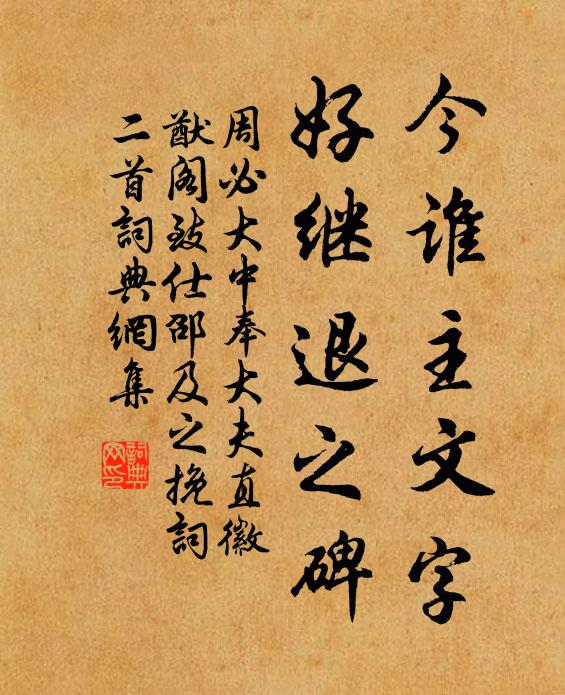 今谁主文字
好继退之碑
周必大中奉大夫直徽
猷阁致仕邵及之挽詞
二首詞典網集
詞典
网印